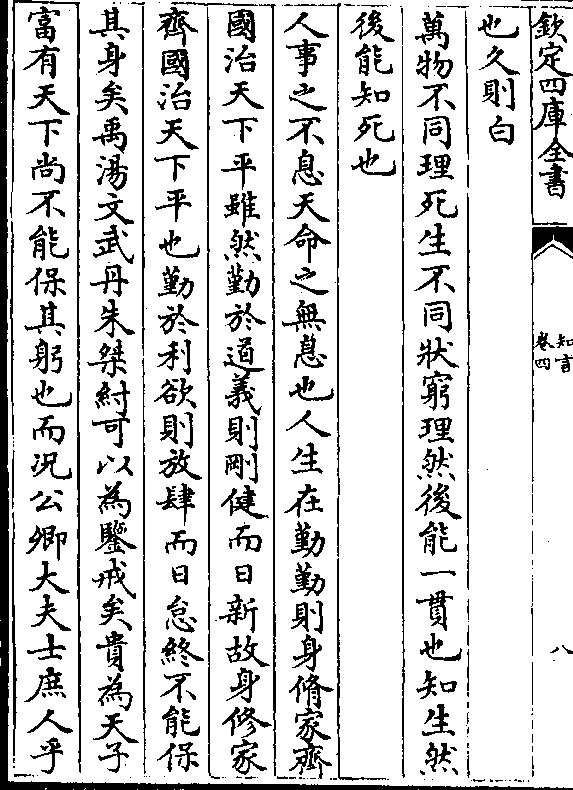 欽定四庫全書
知言
卷四
八
也久則白
萬物不同理死生不同狀窮理然後能一貫也知生然
後能知死也
人事之不息天命之無息也人生在勤勤則身脩家齊
國治天下平雖然勤於道義則剛健而日新故身修家
齊國治天下平也勤於利欲則放肆而日怠終不能保
其身矣禹湯文武丹朱桀紂可以為鑒戒矣貴為天子
富有天下尚不能保其躬也而况公卿大夫士庶人乎